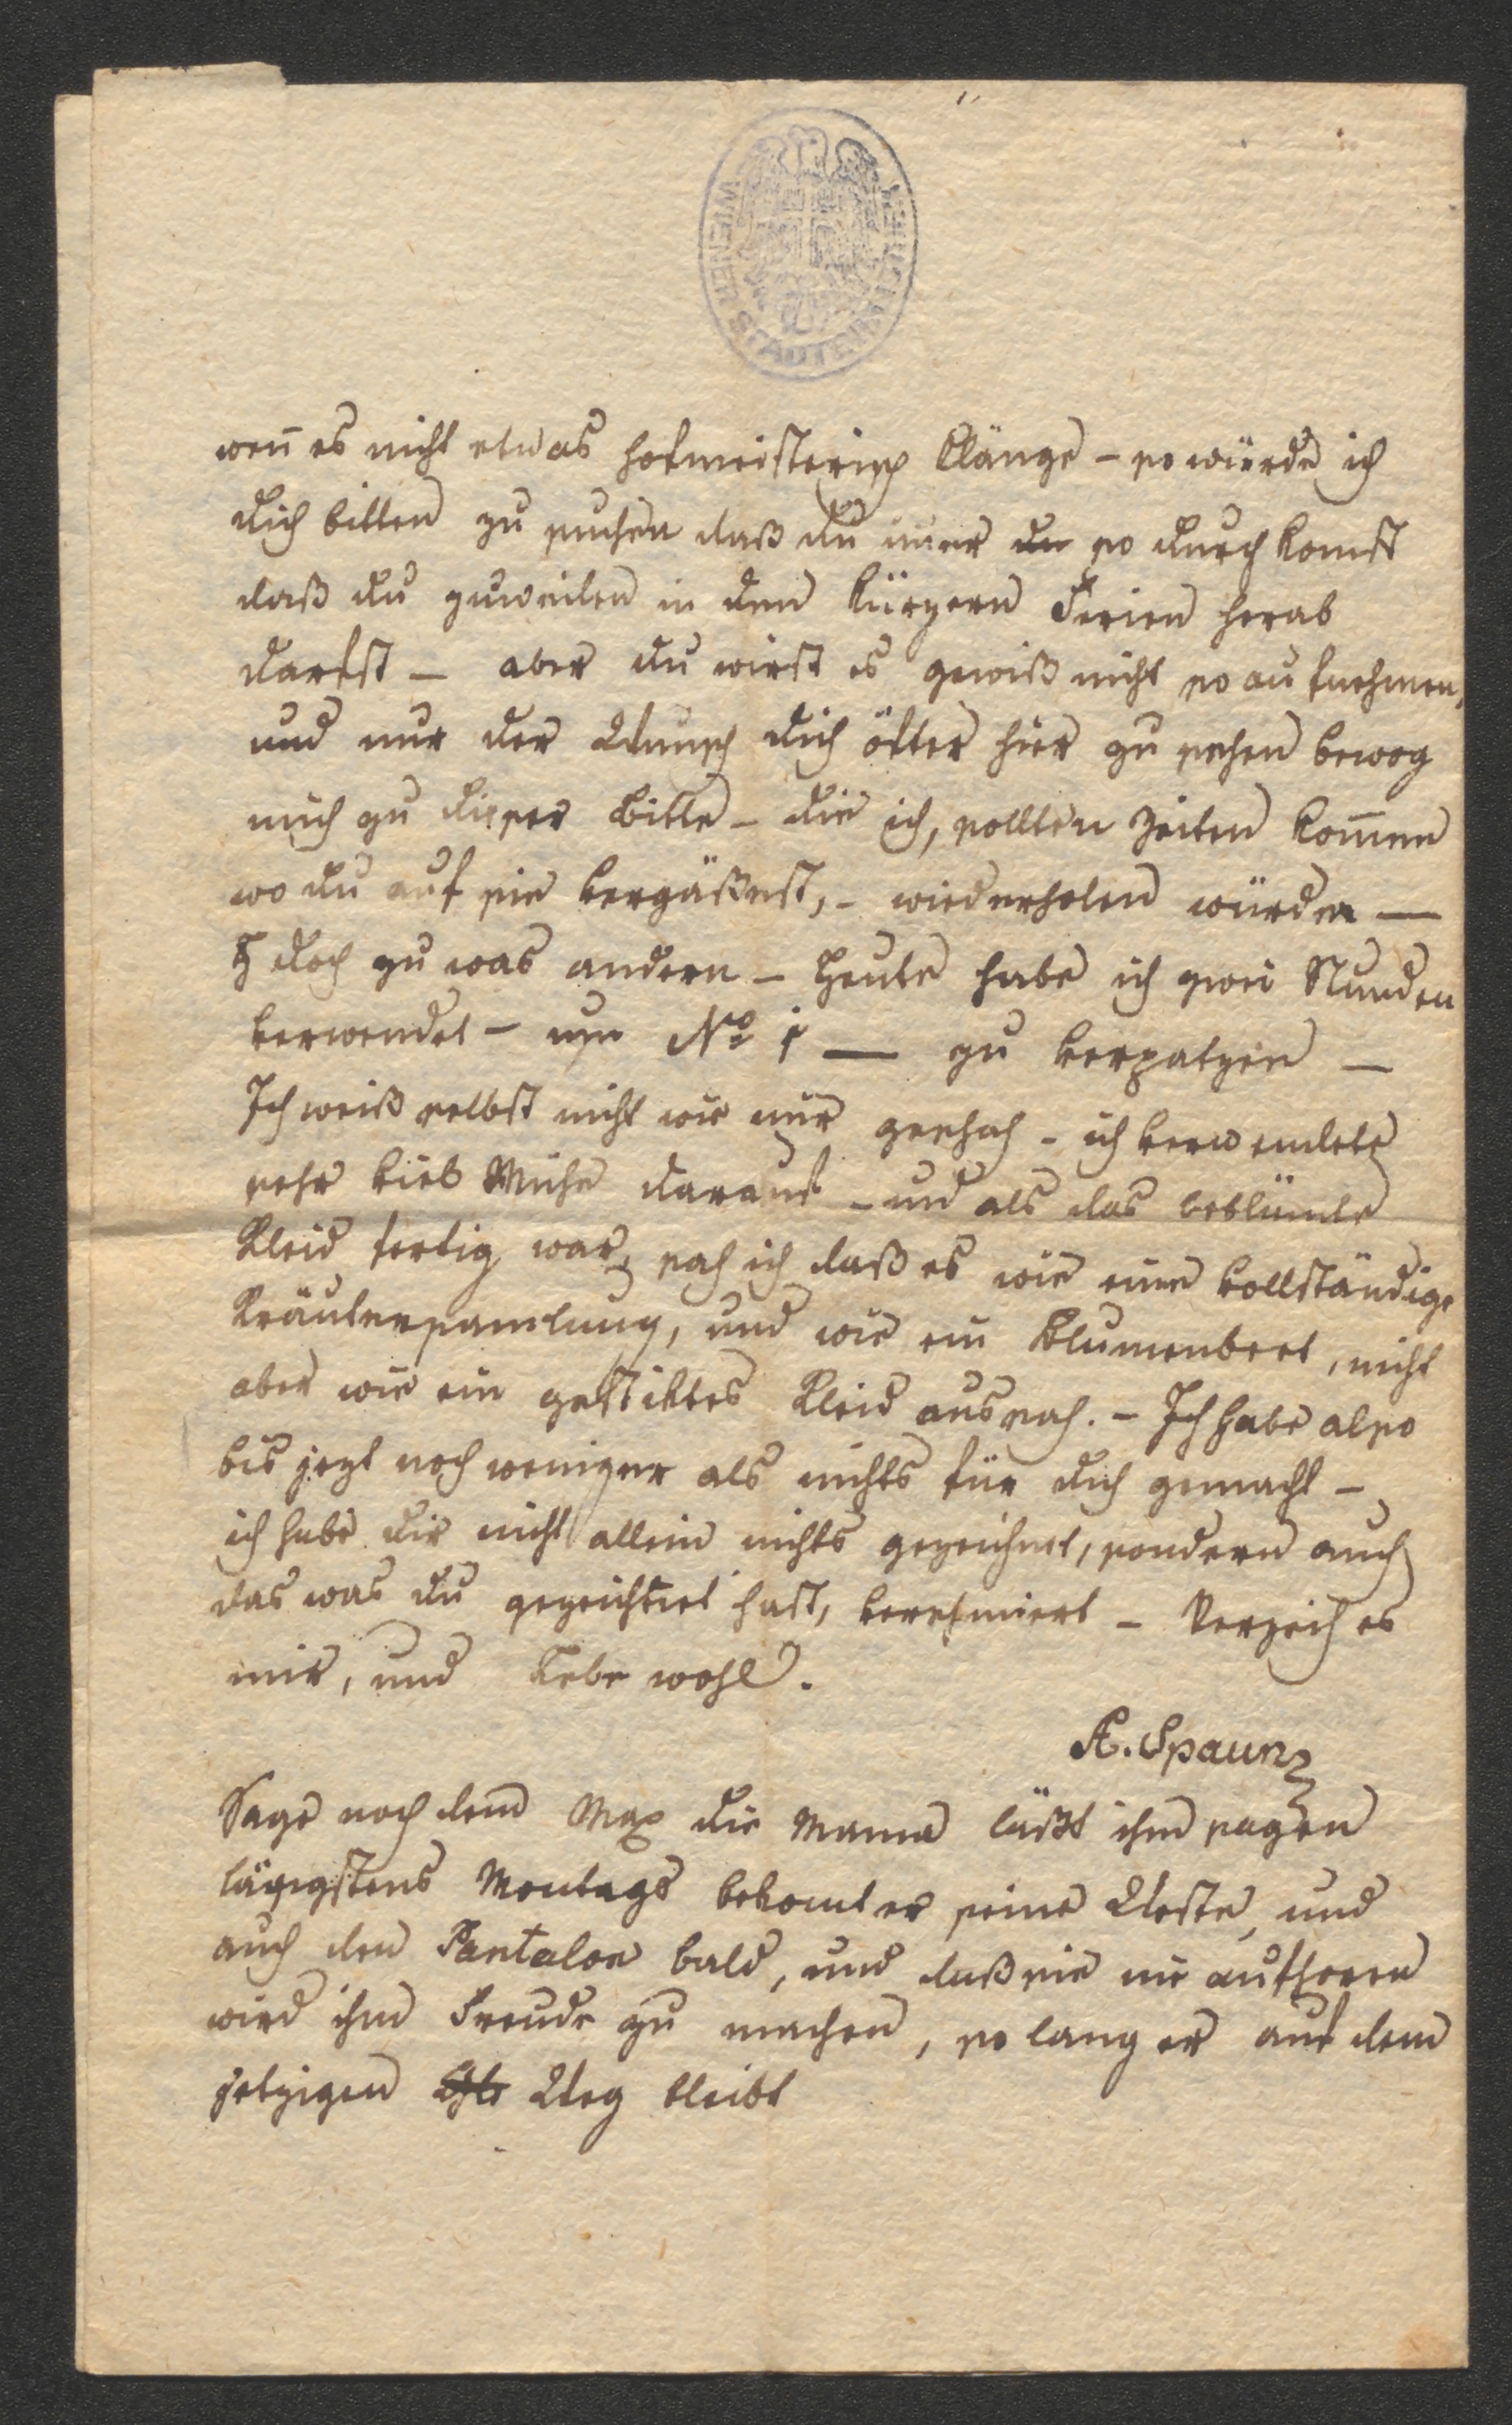 WIENER STADTBIBLIOTHEK
wen̄ es nicht etwas hofmeisterisch klänge – so würde ich
dich bitten zu suchen daß du im̄er du so durch komst
daß du zuweilen in den kürzern Ferien herab
darfst – aber du wirst es gewiß nicht so aufnehmen,
und nur der Wunsch dich öfter hier zu sehen bewog
mich zu dieser Bitte – die ich, sollten Zeiten kom̄en
wo du auf sie vergäßest, – wiederholen würde –
doch zu was andern – Heute habe ich zwei Stunden
verwendet – um No 1 — zu verpatzen –
Ich weiß selbst nicht wie mir geschah – ich verwendete
sehr viel Mühe darauf – und als das beblümte
Kleid fertig war, sah ich daß es wie eine vollständige
Kräutersamlung, und wie ein Blumenbeet, nicht
aber wie ein gesticktes Kleid aussah. – Ich habe also
bis jezt noch weniger als nichts für dich gemacht –
ich habe dir nicht allein nichts gezeichnet, sondern auch
das was du gezeichnet hast, verschmiert – Verzeih es
mir, und Lebe wohl.
A. Spaun
Sage noch dem Max die Mama läßt ihm sagen
längstens Montags bekomt er seine Weste, und
auch den Pantalon bald, und daß sie nie aufhoren
wird ihm Freude zu machen, so lang er auf dem
jetzigen Weg bleibt